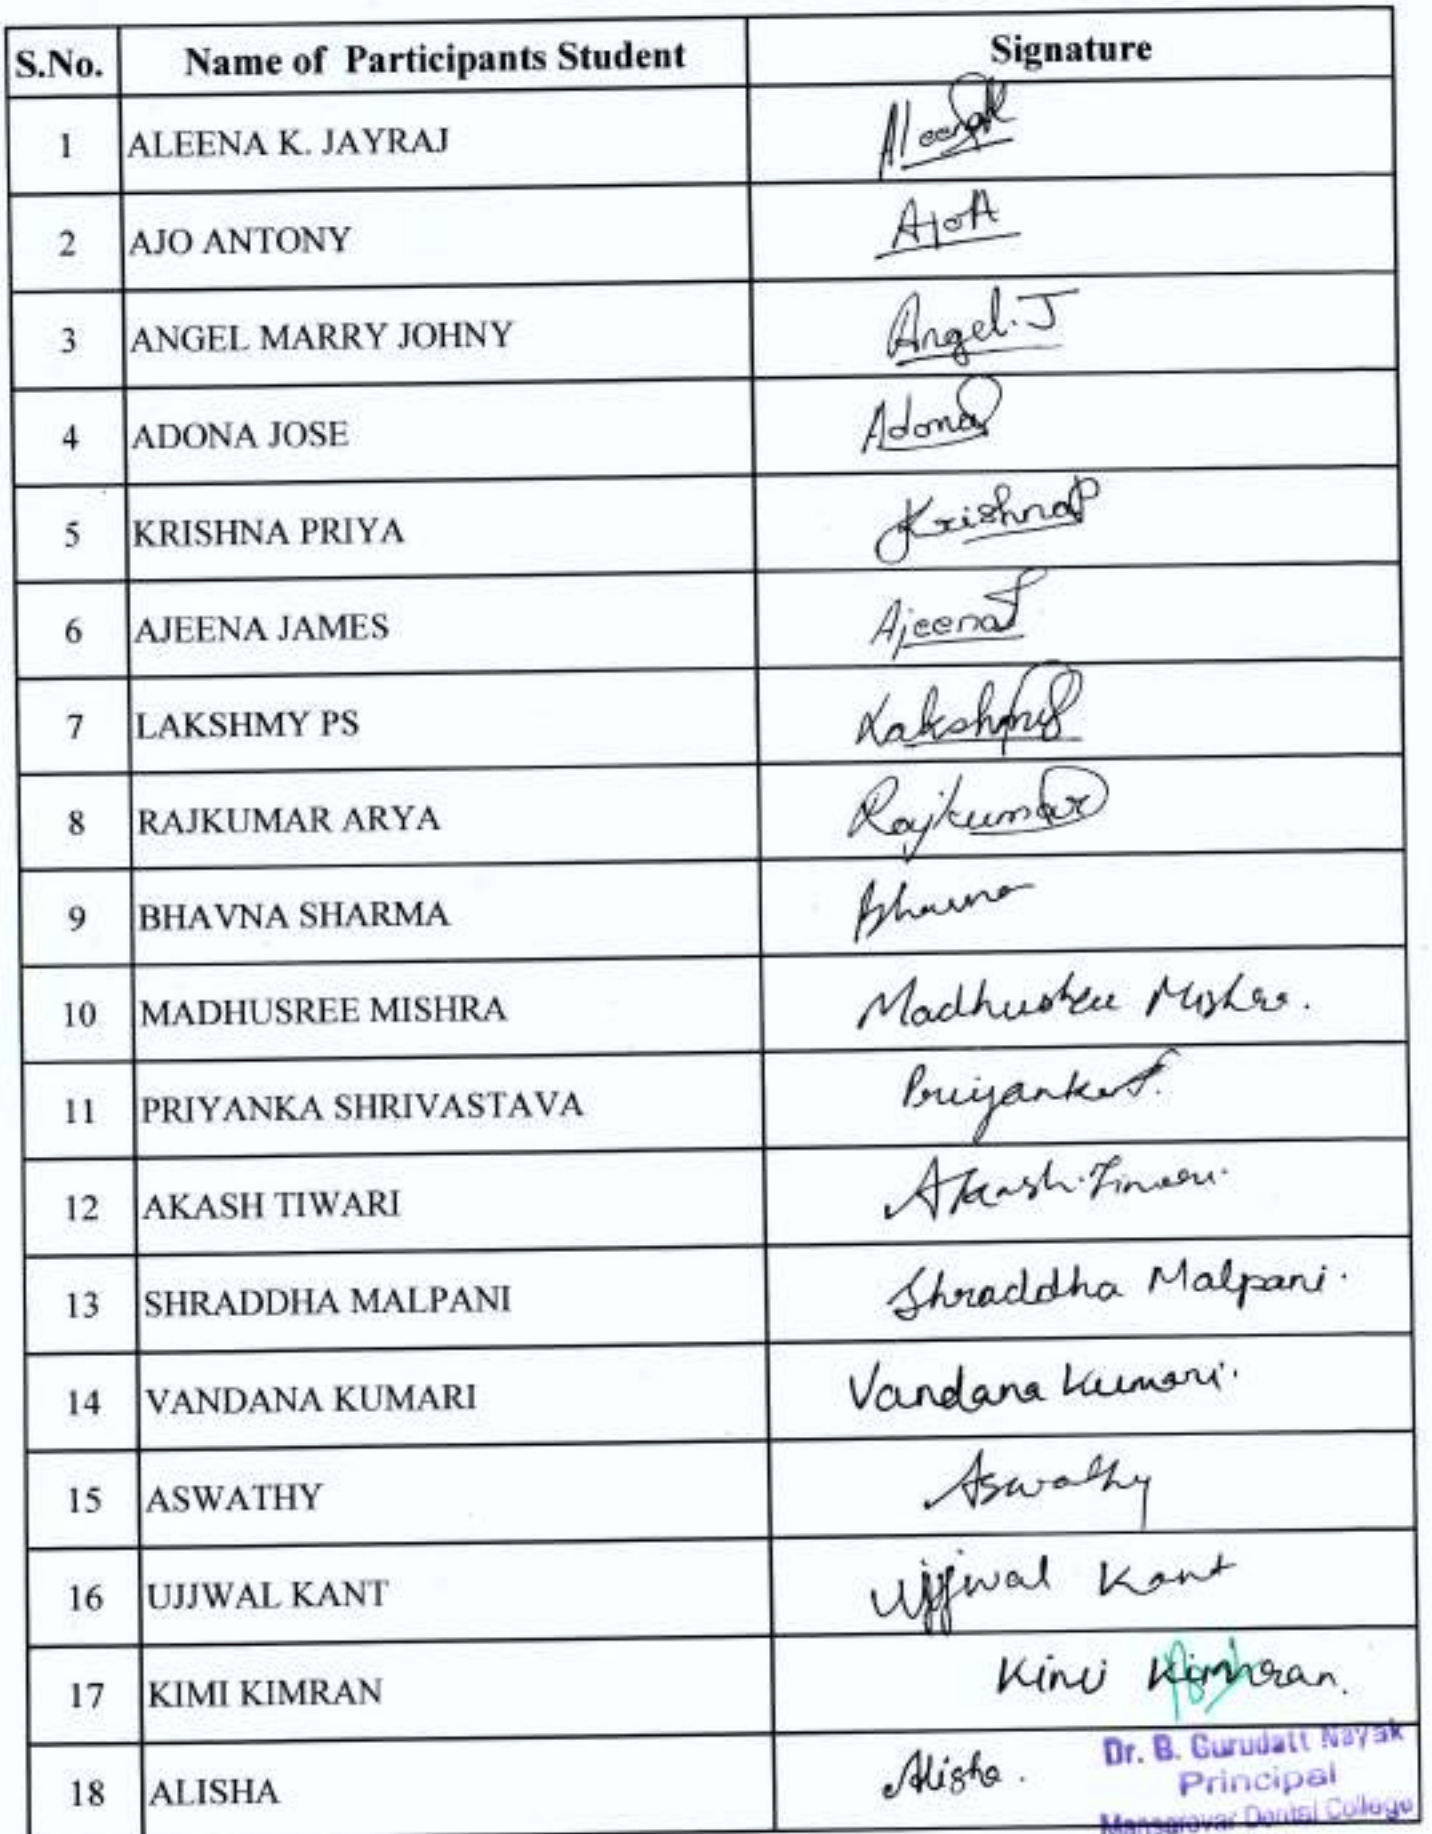 S.No. Name of Participants Student Signature
1 ALEENA K. JAYRAJ Aleena
2 AJO ANTONY AjoA
3 ANGEL MARRY JOHNY Angel.J
4 ADONA JOSE Adona
5 KRISHNA PRIYA KrishnaP
6 AJEENA JAMES AjeenaJ
7 LAKSHMY PS Lakshmy
8 RAJKUMAR ARYA Rajkumar
9 BHAVNA SHARMA Bhavna
10 MADHUSREE MISHRA Madhusree Mishra.
11 PRIYANKA SHRIVASTAVA PriyankaS.
12 AKASH TIWARI Akash.Tiwari.
13 SHRADDHA MALPANI Shraddha Malpani.
14 VANDANA KUMARI Vandana Kumari.
15 ASWATHY Aswathy
16 UJJWAL KANT Ujjwal Kant
17 KIMI KIMRAN Kimi Kimran.
18 ALISHA Alisha.
Dr. B. Gurudatt Nayak
Principal
Mansarovar Dental College